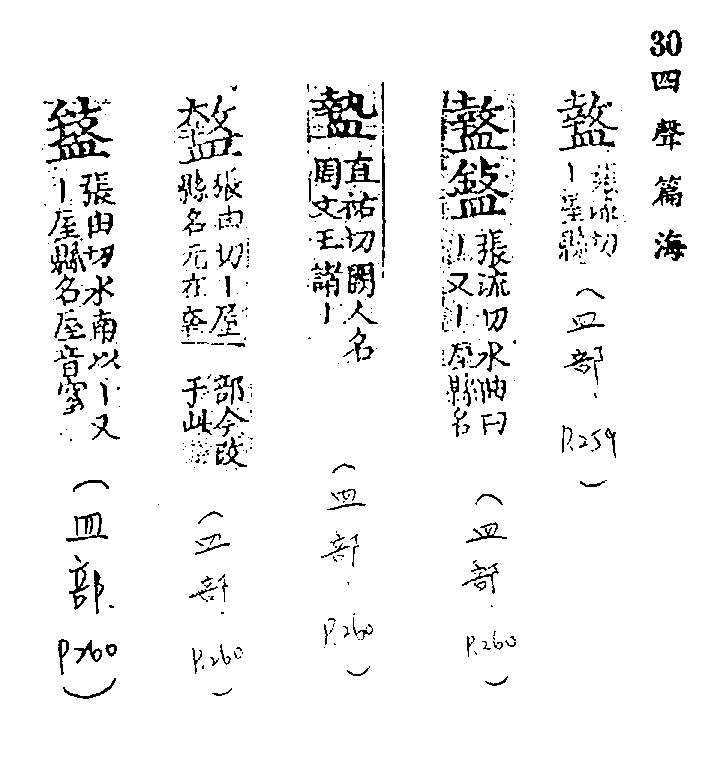 30 四聲篇海
盩 張流切
丨厔縣
（皿部. P.259）
張流切水曲曰
丨又丨厔縣名
（皿部. P.260）
直祐切闕人名
周文王諸丨
（皿部. P.260）
張由切丨厔
縣名元在
部今改
于此
（皿部. P.260）
張由切水南以丨又
丨厔縣名厔音窒
（皿部. P.260）